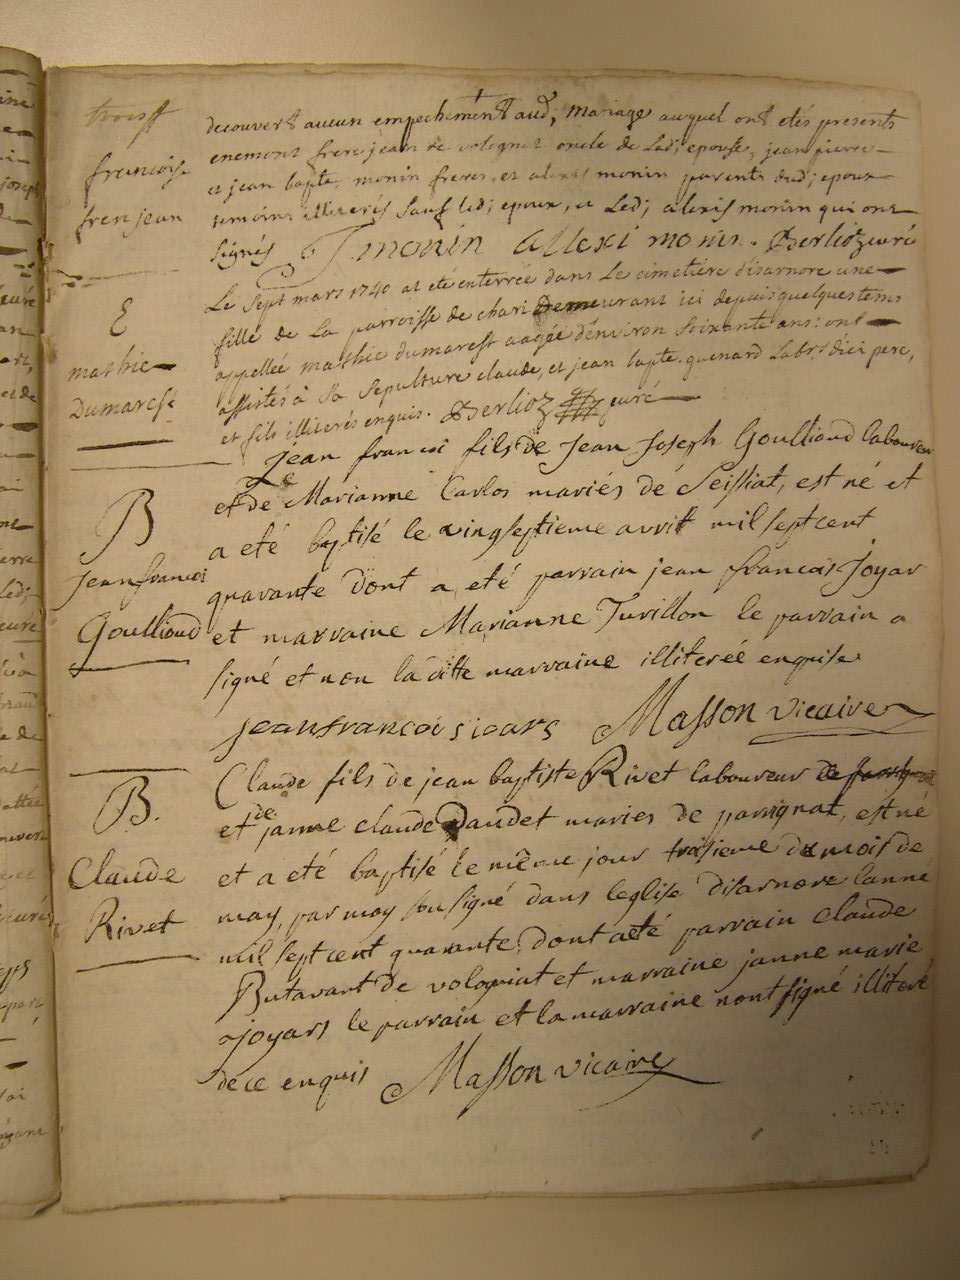 françoise
frere jean
decouvert aucun empechement aud; mariage auquel ont etés presents
enemont frere jean de volognat oncle de Lad; epouse, jean pierre
et jean bapte. monin freres, et alexis monin parents dud; epoux
temoins illiterés sauf led; epoux, et Led; alexis monin qui ont
signés J. monin allexi monin. Berlioz curé
E
mathie
Dumarest
Le sept mars 1740 at eté enterrée dans Le cimetière d'isarnore une
fille de La parroisse de chari Demeurant ici depuis quelques tems
appellée mathie dumarest aagée d'environ soixante ans: ont
assistés à sa sepulture claude, et jean bapte. guenard Labrs d'ici pere,
et fils illiterés enquis. Berlioz curé
B
Jean francoi
Goullioud
Jean francoi fils de Jean Joseph Goullioud laboureur
et de Marianne Carlos mariés de Seissiat, est né et
a eté baptisé le vingseptieme avrit mil sept cent
quarante dont a eté parrain jean francois Joyar
et marraine Marianne Turillon le parrain a
signé et non la ditte marraine illiterée enquise
jean francois joars Masson vicaire
B.
Claude
Rivet
Claude fils de jean baptiste Rivet laboureur
et de janne claude Daudet maries de parignat, est né
et a eté baptisé le même jour troisieme du mois de
may, par moy sousigné dans leglise disarnore lanne
mil sept cent quarante, dont a eté parrain claude
Butavant de volognat et marraine janne marie
Joyars le parrain et la marraine nont signé illiteré
de ce enquis Masson vicaire